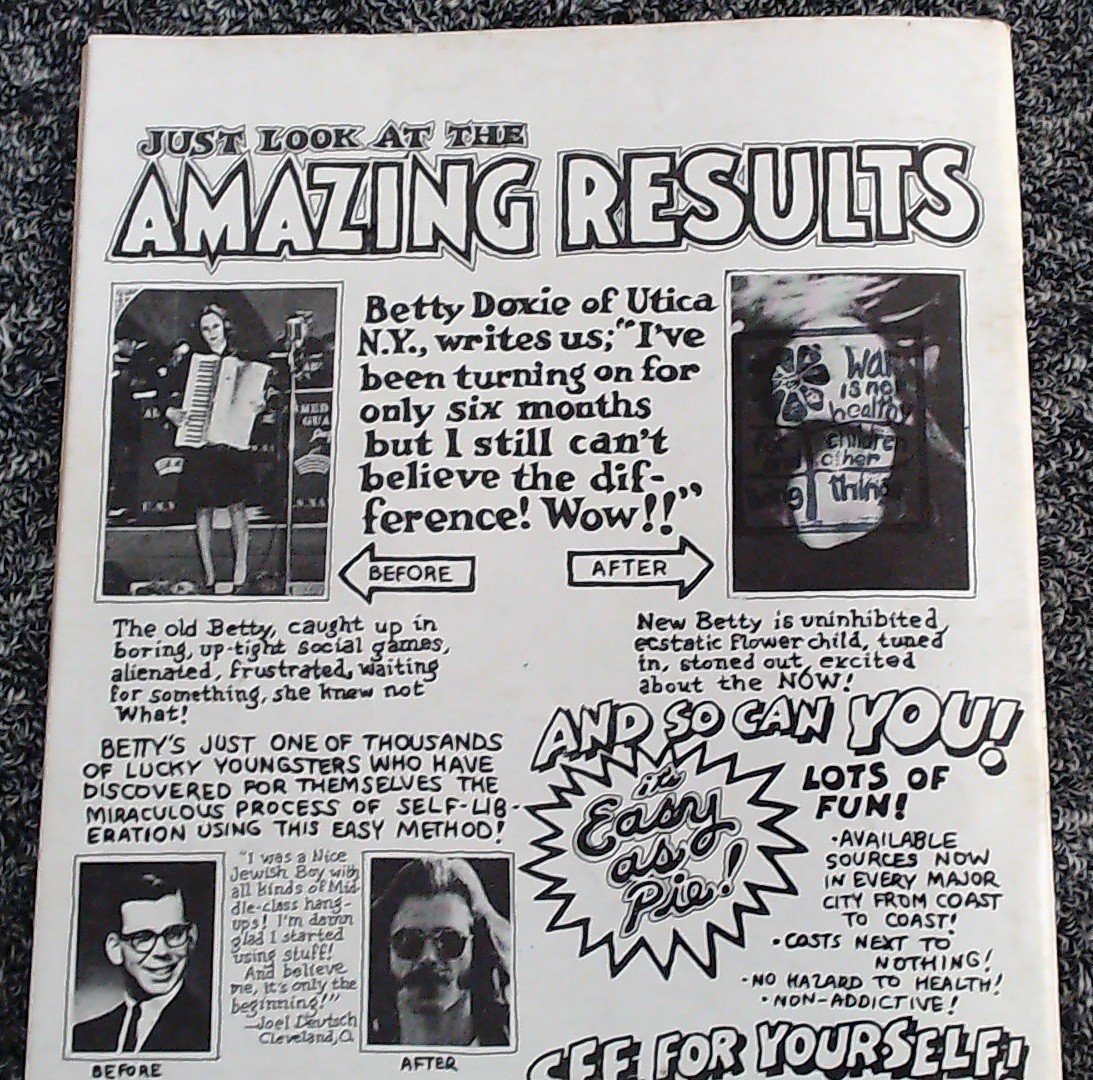 JUST LOOK AT THE
AMAZING RESULTS
Betty Doxie of Utica
N.Y., writes us; "I've
been turning on for
only six months
but I still can't
believe the dif-
ference! Wow!!"
MED
GUA
War
is not
healthy
children
other
things
BEFORE
AFTER
The old Betty, caught up in
boring, up-tight social games,
alienated, frustrated, waiting
for something, she knew not
What!
New Betty is uninhibited,
ecstatic flower child, tuned
in, stoned out, excited
about the NOW!
AND SO CAN YOU!
BETTY'S JUST ONE OF THOUSANDS
OF LUCKY YOUNGSTERS WHO HAVE
DISCOVERED FOR THEMSELVES THE
MIRACULOUS PROCESS OF SELF-LIB-
ERATION USING THIS EASY METHOD!
it's
Easy
as
Pie!
LOTS OF
FUN!
•AVAILABLE
SOURCES NOW
IN EVERY MAJOR
CITY FROM COAST
TO COAST!
•COSTS NEXT TO
NOTHING!
•NO HAZARD TO HEALTH!
•NON-ADDICTIVE!
"I was a Nice
Jewish Boy with
all kinds of Mid-
dle-class hang-
ups! I'm damn
glad I started
using stuff!
And believe
me, it's only the
beginning!"
—Joel Deutsch
Cleveland, O.
BEFORE
AFTER
SEE FOR YOURSELF!